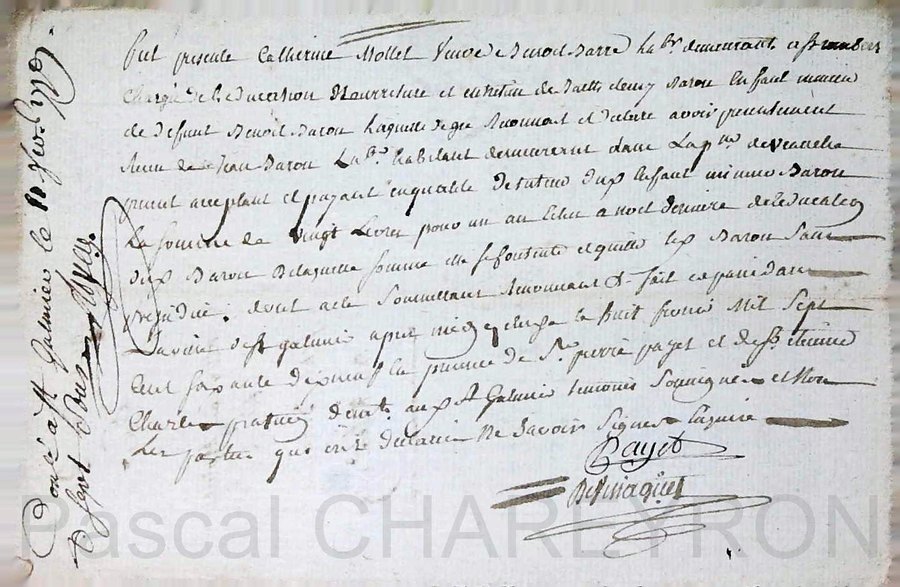 fut presente Catherine Mollet veuve Benoit Barou labr demeurant a St
Chargée de l'education Nourriture et entretien de Barthelemy Barou Enfant mineur
de deffunt Benoit Barou Laquelle de gre Reconnait et declare avoir presentement
Receu de Jean Barou Labr habitant demeurant dans La psse de veauche
present acceptant et payant en qualité de tuteur dud Enfant mineur Barou
La somme de vingt Livres pour un an Echu a noel dernier de l'education
dud Barou De laquelle somme elle se contente et quitte led Barou Sans
prejudice. dont acte Soumettant Renoncant &c fait et passé dans
La ville de St galmier apres midy ce huit fevrier Mil Sept
Cent soixante dix neuf En presence de Sr pierre payet et de Sr etienne
Charles praticien demts aud St Galmier temoins Soussignes et Non
Les parties qui ont declaré Ne Savoir Signer Enquises
Payet
Controlé a St Galmier le fevr 1779.
Reçu Sous
Pascal CHARLYRON